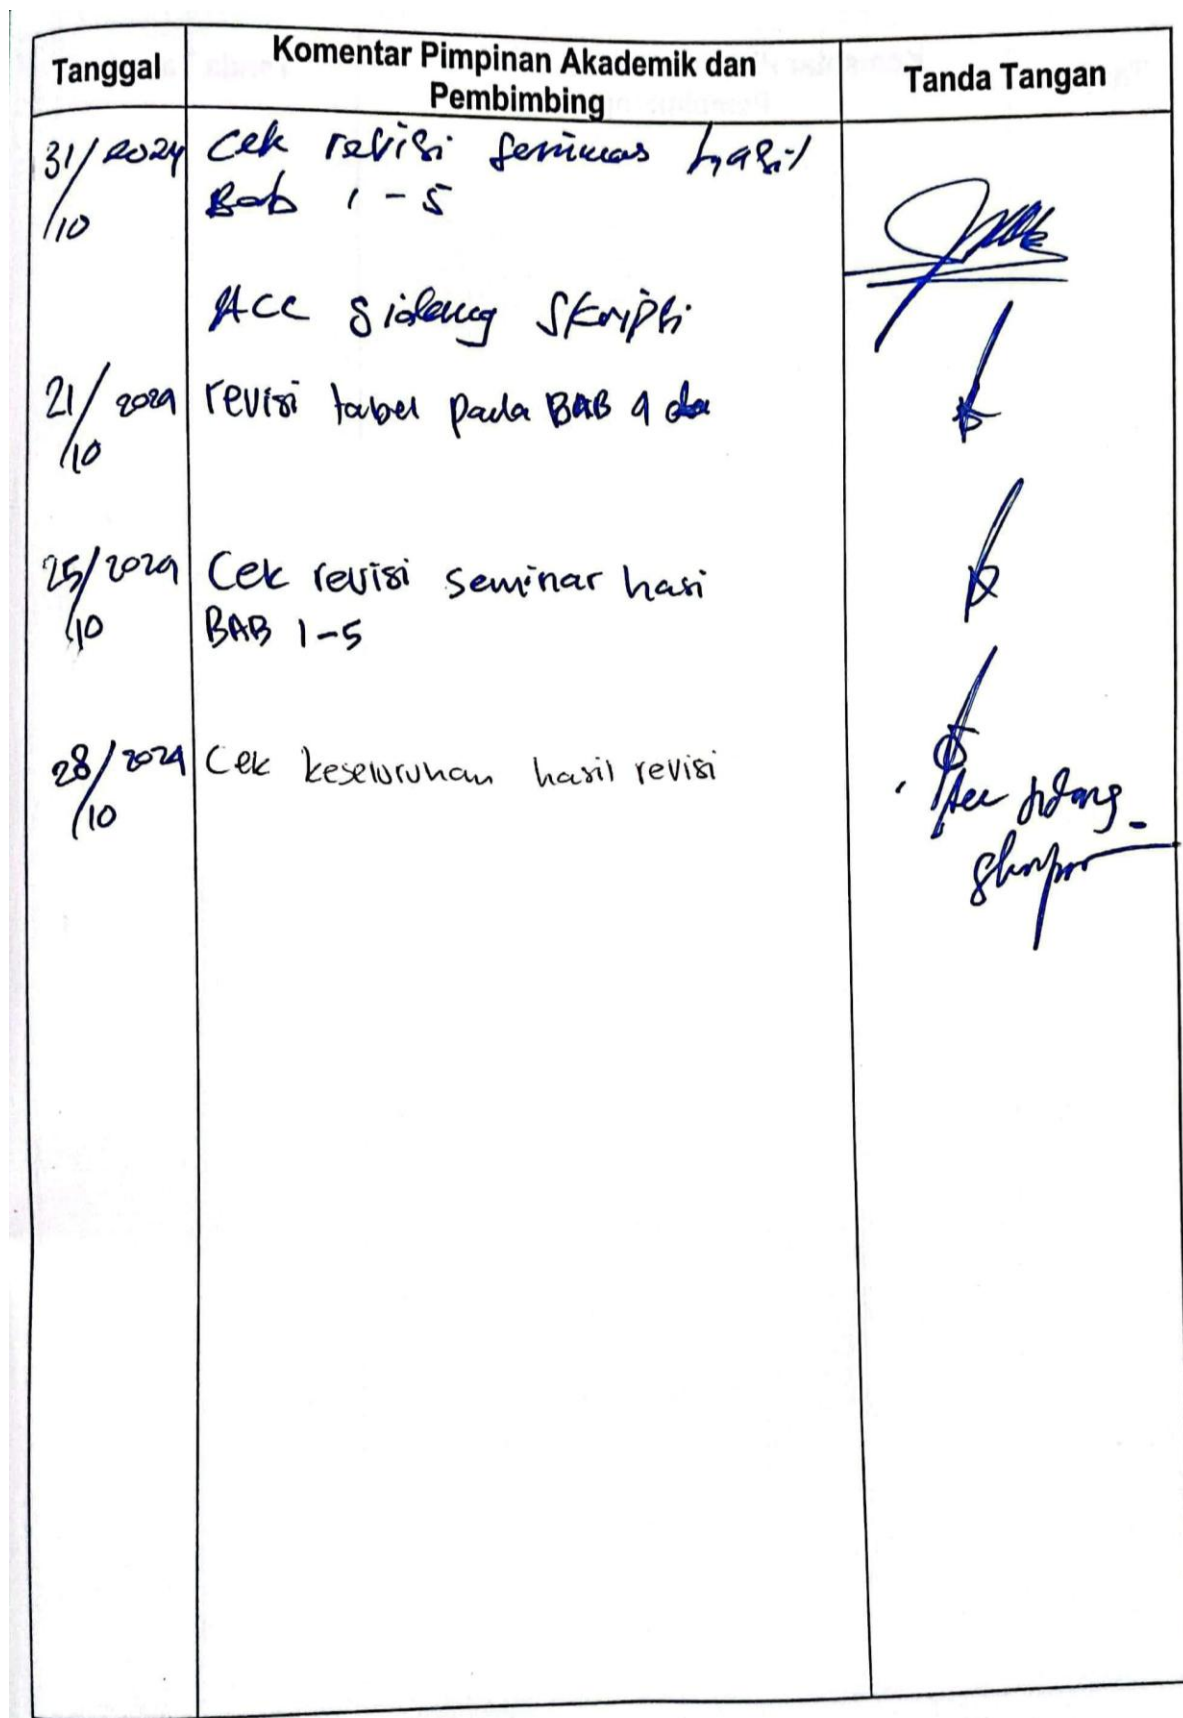 Tanggal
Komentar Pimpinan Akademik dan
Pembimbing
Tanda Tangan
31/10 2024 Cek revisi seminar hasil
Bab 1 - 5
Acc Sidang Skripsi
21/10 2024 revisi tabel pada BAB 4
25/10 2024 Cek revisi seminar hasi
BAB 1-5
28/10 2024 Cek keseluruhan hasil revisi
Acc sidang